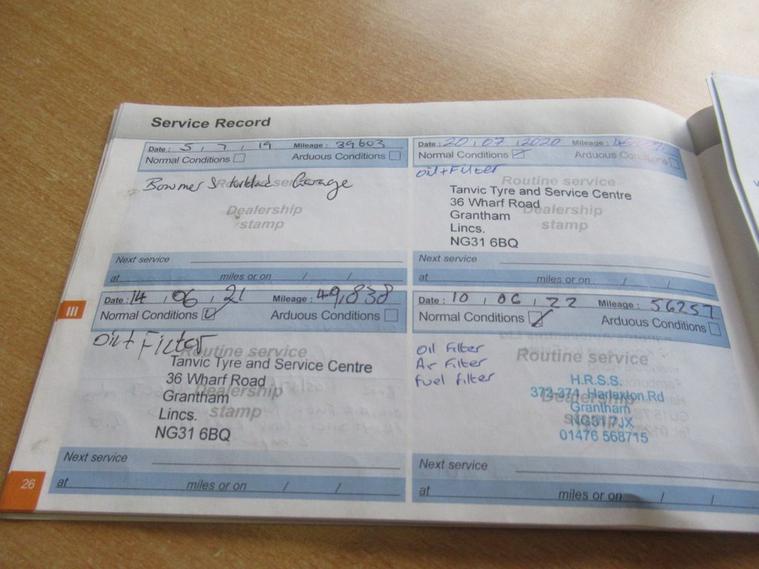 Service Record
Date: 5 / 7 / 19 Mileage: 39603
Normal Conditions Arduous Conditions
Garage
Dealership
stamp
Next service
at miles or on / /
Date: 20 / 07 / 2020 Mileage:
Normal Conditions Arduous Conditions
Oil + Filter
Routine service
Tanvic Tyre and Service Centre
36 Wharf Road
Grantham
Lincs.
NG31 6BQ
Dealership
stamp
Next service
at miles or on / /
III
Date: 14 / 06 / 21 Mileage: 49,838
Normal Conditions Arduous Conditions
Oil + Filter
Routine service
Tanvic Tyre and Service Centre
36 Wharf Road
Grantham
Lincs.
NG31 6BQ
Dealership
stamp
Next service
at miles or on / /
Date: 10 / 06 / 22 Mileage: 56257
Normal Conditions Arduous Conditions
Oil Filter
Air Filter
Fuel Filter
Routine service
H.R.S.S.
Harlaxton Rd
Grantham
NG31 7JX
01476 568715
Next service
at miles or on / /
26